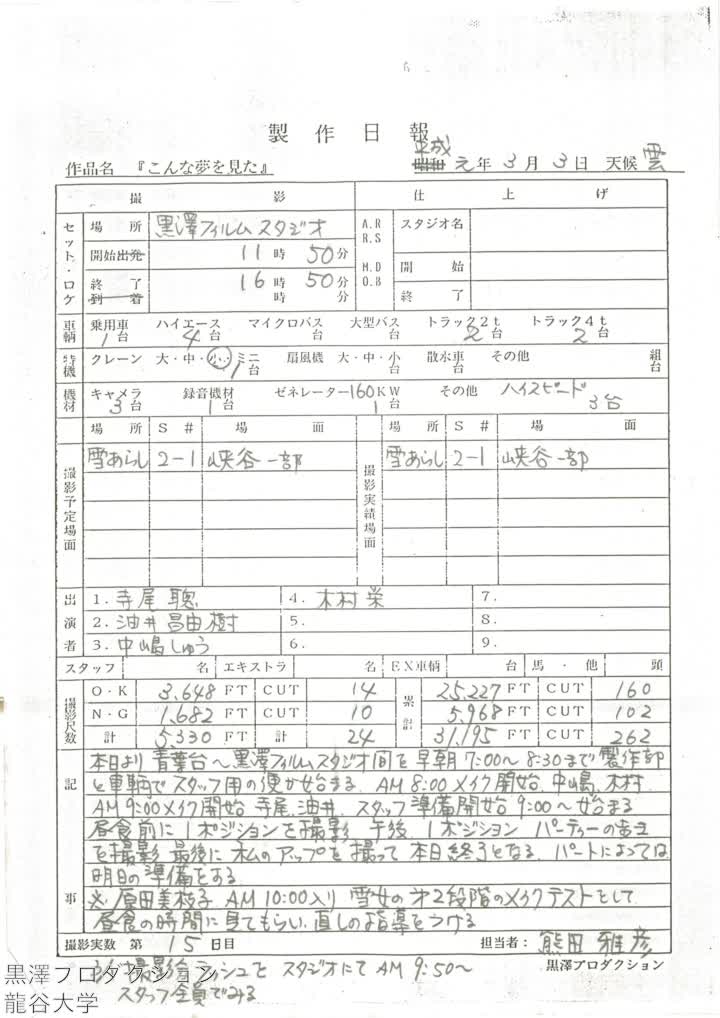 製作日報
作品名 『こんな夢を見た』 平成 元年 3月 3日 天候 雲
撮影 仕上げ
セット・ロケ 場所 黒澤フィルムスタジオ A.R R.S スタジオ名
開始出発 11時 50分 M.D O.B 開始
終了 16時 50分 終了
到着 時 分
車輌 乗用車 1台 ハイエース 4台 マイクロバス 大型バス トラック2t 2台 トラック4t 2台
特機 クレーン 大・中・小・ミニ 1台 扇風機 大・中・小 台 散水車 台 その他 組 台
機材 キャメラ 3台 録音機材 1台 ゼネレーター160KW 1台 その他 ハイスピード 3台
場所 S# 場面 場所 S# 場面
撮影予定場面 雪あらし 2-1 峡谷一部 撮影実績場面 雪あらし 2-1 峡谷一部
出演者 1. 寺尾聰 4. 木村栄 7.
2. 油井昌由樹 5. 8.
3. 中嶋しゅう 6. 9.
スタッフ 名 エキストラ 名 EX車輌 台 馬・他 頭
撮影尺数 O・K 3,648 FT CUT 14 累計 25,227 FT CUT 160
N・G 1,682 FT CUT 10 5,968 FT CUT 102
計 5,330 FT 計 24 31,195 FT CUT 262
記事 本日より青葉台〜黒澤フィルムスタジオ間を早朝7:00〜8:30まで製作部
と車輌でスタッフ用の便が始まる. AM 8:00メイク開始 中嶋、木村
AM 9:00メイク開始 寺尾、油井 スタッフ準備開始 9:00〜始まる
昼食前に1ポジションを撮影 午後、1ポジション パーティーの
を撮影 最後に私のアップを撮って本日終了となる. パートによっては
明日の準備をする
※ 原田美枝子 AM 10:00入り 雪女の第2段階のメイクテストをして
昼食の時間に見てもらい、直しの指導をつける
撮影実数 第 15日目 担当者: 熊田雅彦
黒澤プロダクション
撮影分ラッシュを スタジオにて AM 9:50〜
スタッフ全員でみる
黒澤プロダクション
龍谷大学